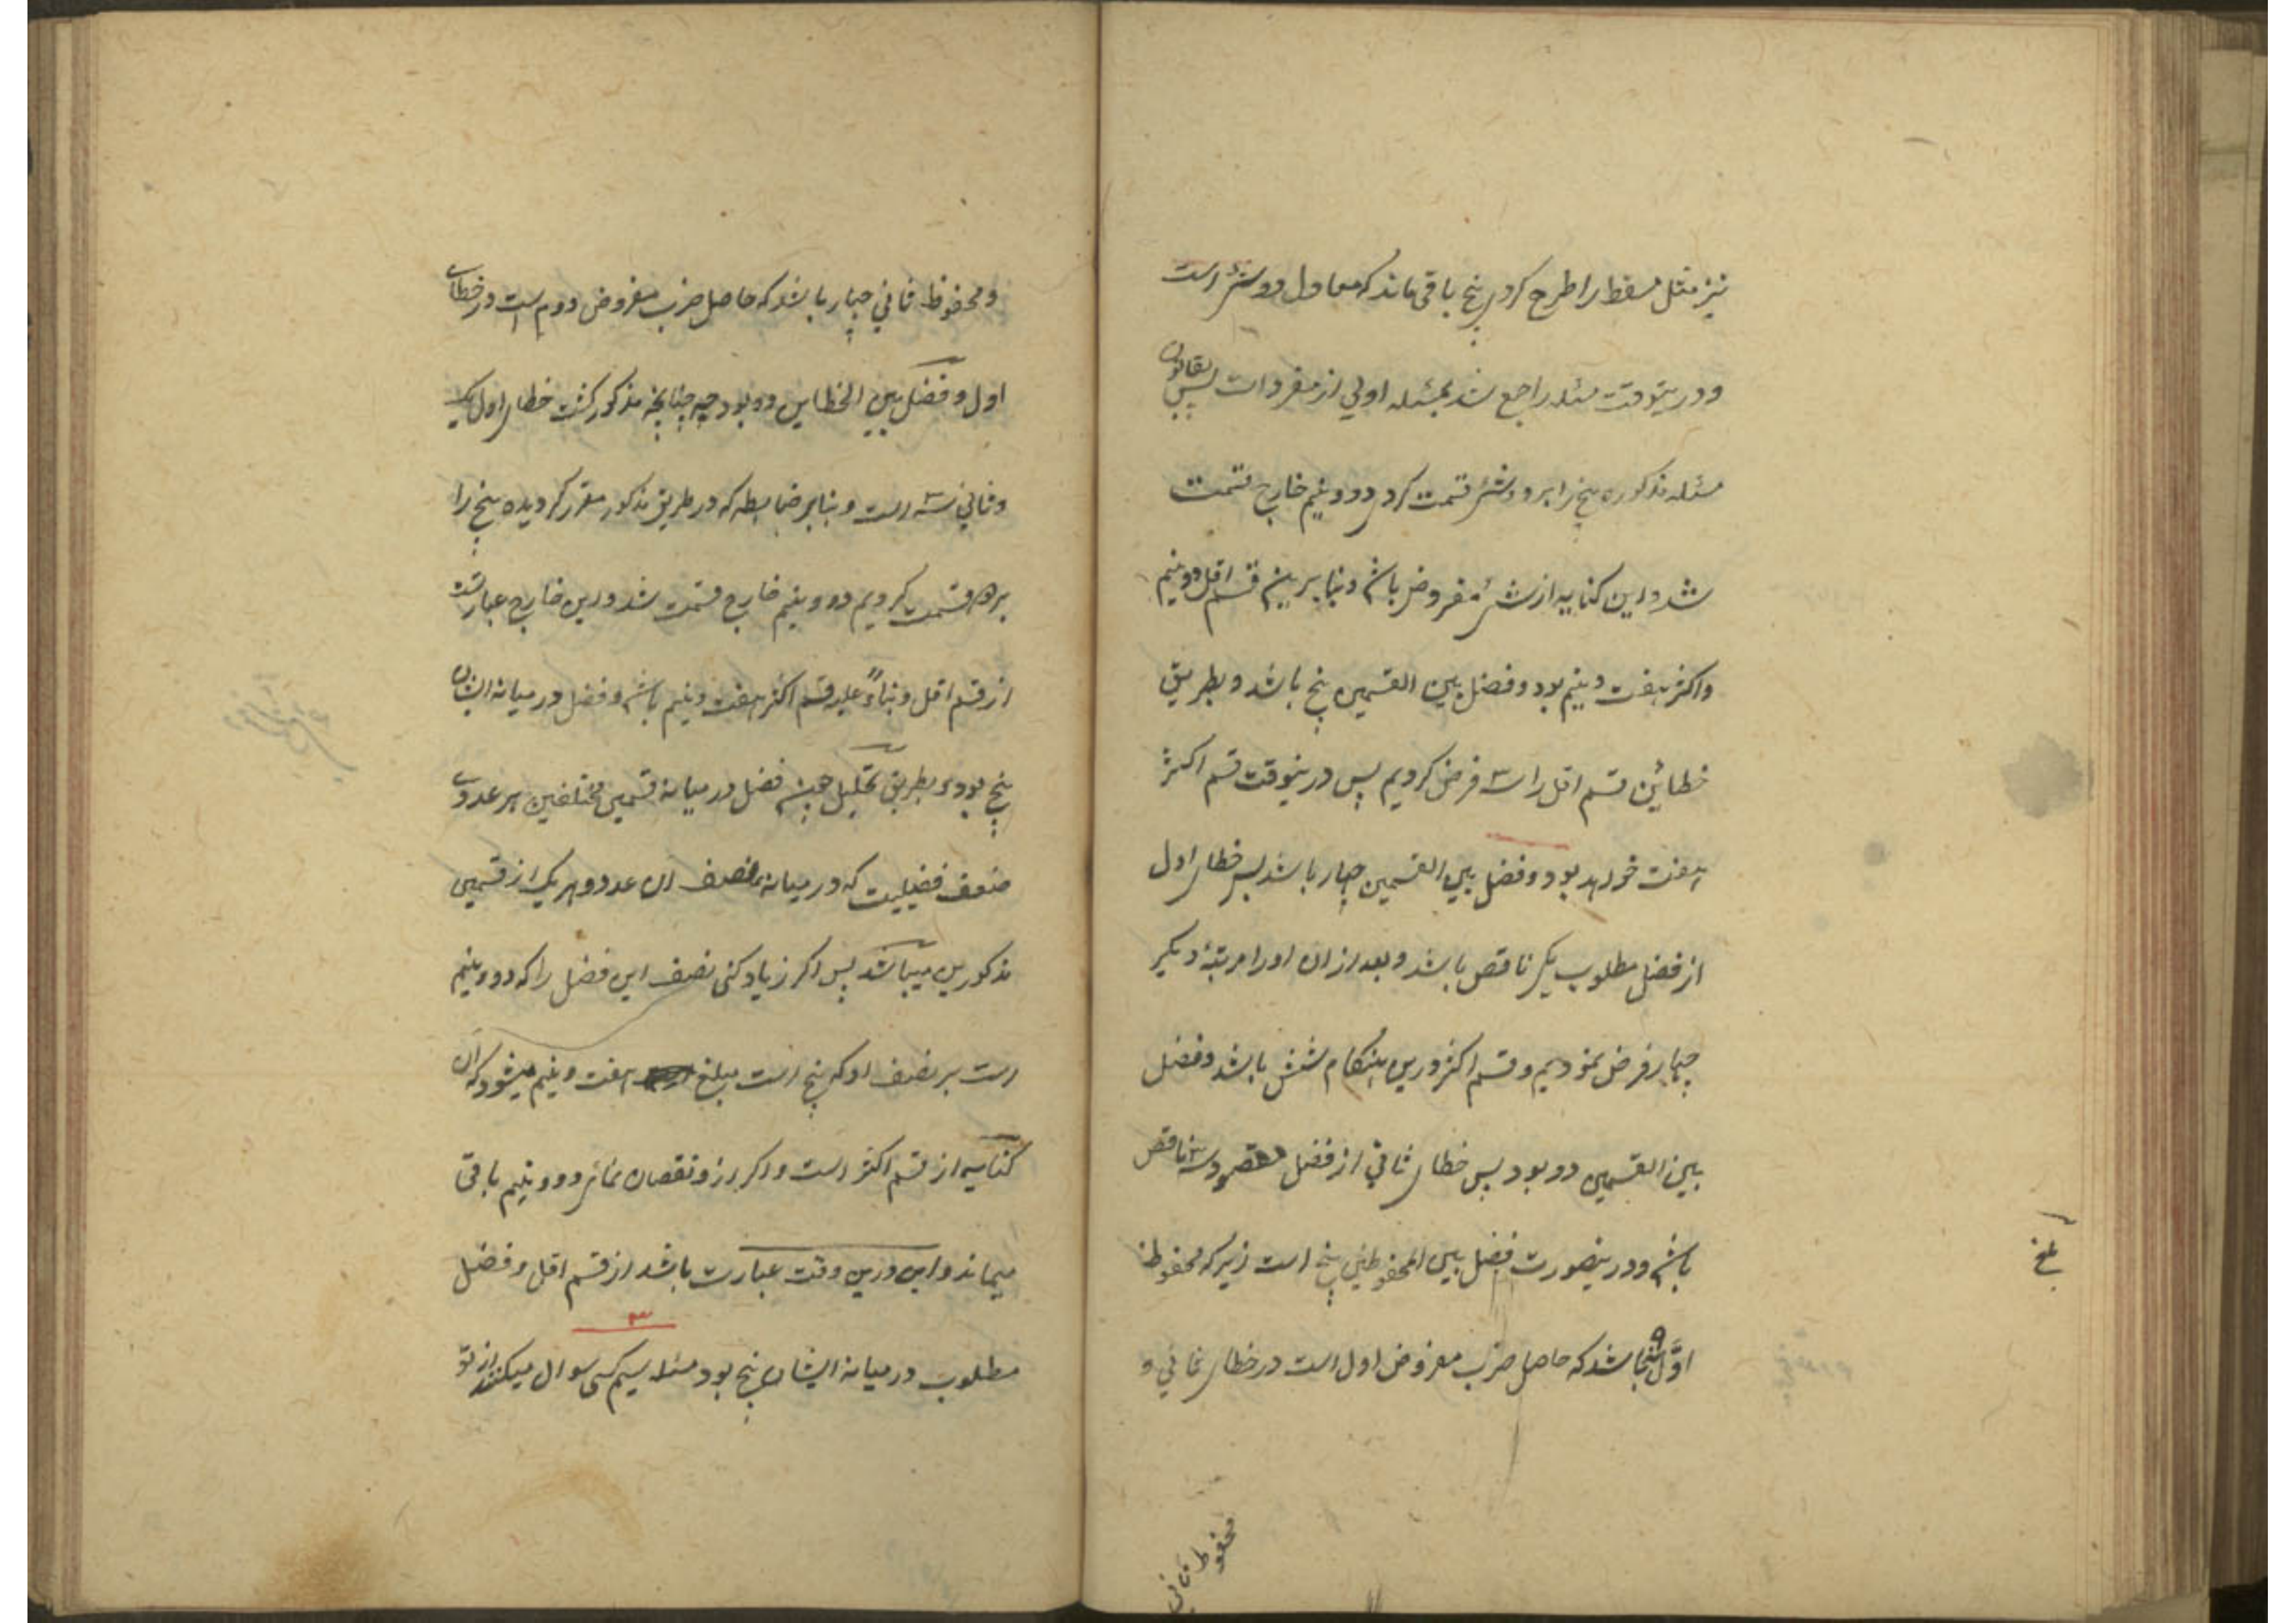 نیز مثل مسقط را طرح کردی پنج باقی ماند که معادل دو شئ است
و درینوقت مسئله راجع شد بمسئله اولی از مفردات پس بقانون
مسئله مذکوره پنج را بر دو شئ قسمت کردی دو و نیم خارج قسمت
شد و این کنایه از شئ مفروض باشد و بنابرین قسم اقل دو و نیم
و اکثر هفت و نیم بود و فضل بین القسمین پنج باشد و بطریق
خطائین قسم اقل را سه فرض کردیم پس درینوقت قسم اکثر
هفت خواهد بود و فضل بین القسمین چهار باشد پس خطای اول
از فضل مطلوب یکی ناقص باشد و بعد از ان او را مرتبه دیکر
چهار فرض نمودیم و قسم اکثر درین هنکام شش باشد و فضل
بین القسمین دو بود پس خطای ثانی از فضل مقصود سه ناقص
باشد و درینصورت فضل بین المحفوظین پنج است زیرا که محفوظ
اول ۹ باشد که حاصل ضرب مفروض اول است در خطای ثانی و
بلغ
محفوظ ثانی
و محفوظ ثانی چهار باشد که حاصل ضرب مفروض دوم است در خطای
اول و فضل بین الخطاین دو بود چه چنانچه مذکور کشت خطای اول یک
و ثانی سه است و بنابر ضابطه که در طریق مذکور مقرر کردیده پنج را
بر دو قسمت کردیم دو و نیم خارج قسمت شد و این خارج عبارتست
از قسم اقل و بناءً علیه قسم اکثر هفت و نیم باشد و فضل در میانه ایشان
پنج بود و بطریق تحلیل چون فضل در میانه قسمین مختلفین هر عددی
ضعف فضیلیت که در میانه نصف ان عدد و هر یک از قسمین
مذکورین میباشد پس اکر زیاد کنی نصف این فضل را که دو و نیم
است بر نصف او که پنج است مبلغ هفت و نیم میشود که ان
کنایه از قسم اکثر است و اکر ازو نقصان نمائی دو و نیم باقی
میماند و این درین وقت عبارت باشد از قسم اقل و فضل
مطلوب در میانه ایشان پنج بود مسئله سیم کسی سوال میکند از تو